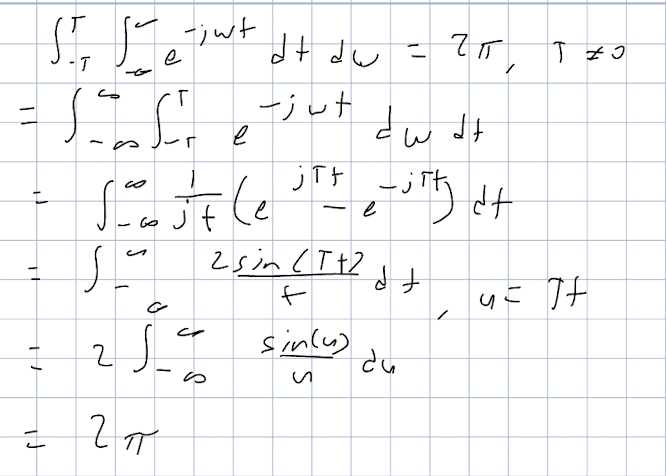 ∫_{-T}^{T} ∫_{-∞}^{∞} e^{-jωt} dt dω = 2π, T ≠ 0
= ∫_{-∞}^{∞} ∫_{-T}^{T} e^{-jωt} dω dt
= ∫_{-∞}^{∞} 1/(jt) (e^{jTt} - e^{-jTt}) dt
= ∫_{-∞}^{∞} 2sin(Tt)/t dt, u = Tt
= 2 ∫_{-∞}^{∞} sin(u)/u du
= 2π